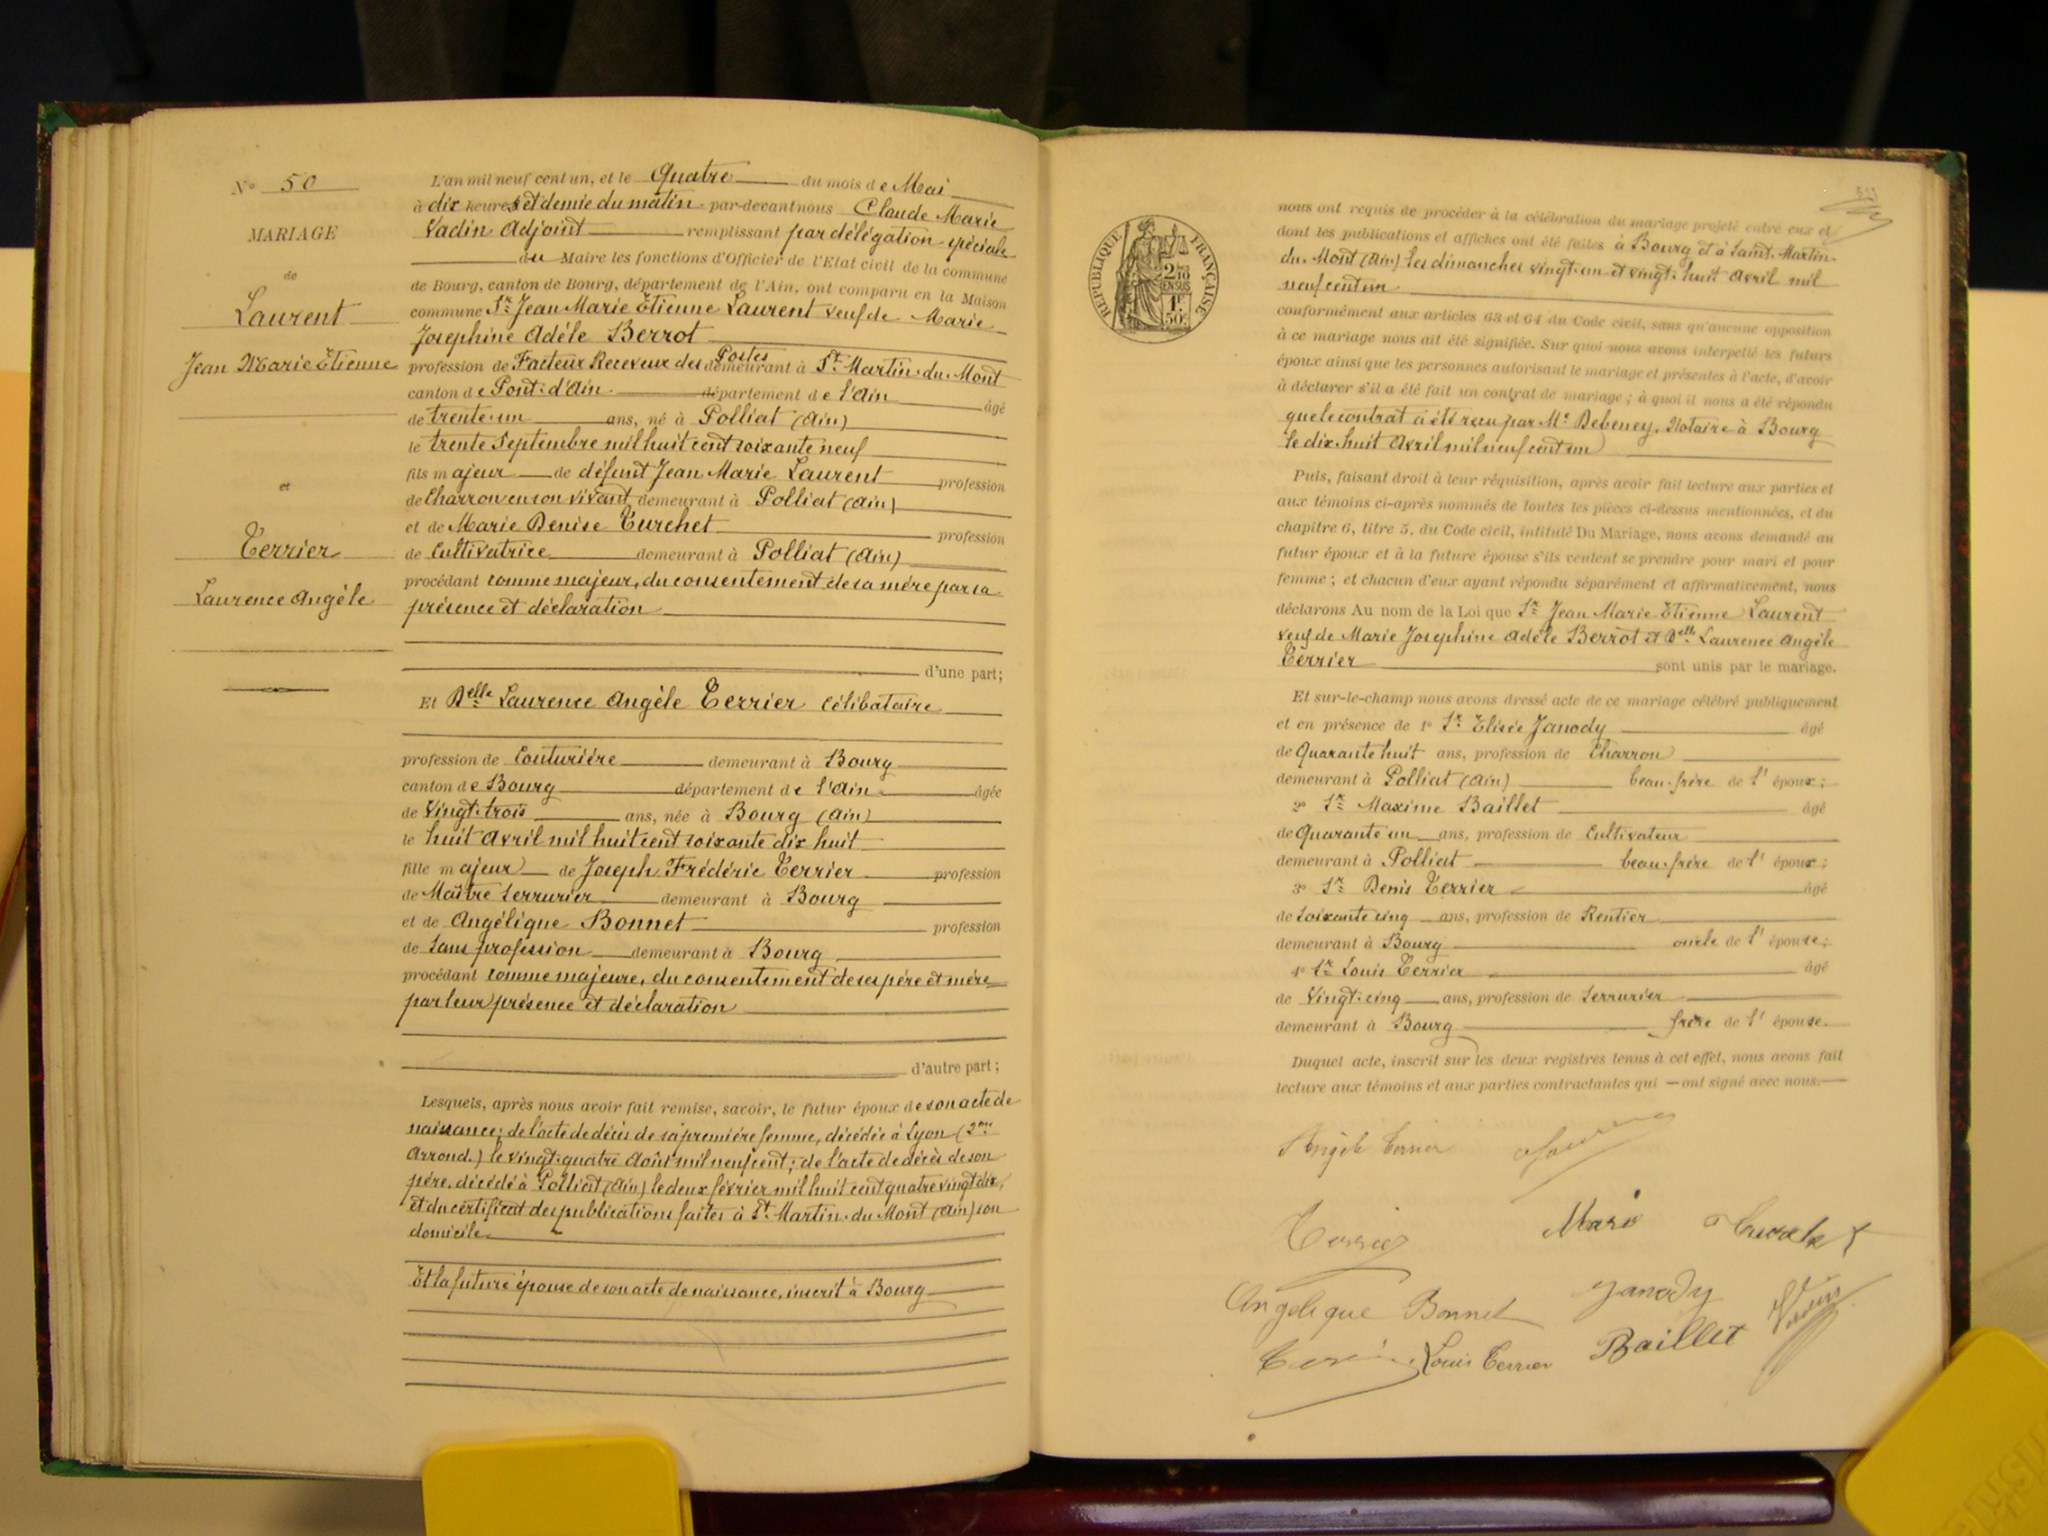 N° 50
MARIAGE
de
Laurent
Jean Marie Etienne
et
Terrier
Laurence Angèle
L'an mil neuf cent un, et le Quatre du mois de Mai
à dix heures et demie du matin par-devant nous Claude Marie
Vadin Adjoint remplissant par délégation spéciale
du Maire les fonctions d'Officier de l'Etat civil de la commune
de Bourg, canton de Bourg, département de l'Ain, ont comparu en la Maison
commune Sr Jean Marie Etienne Laurent veuf de Marie
Josephine Adèle Berrot
profession de Facteur Receveur des Postes demeurant à St Martin-du-Mont
canton de Pont-d'Ain département de l'Ain âgé
de trente-un ans, né à Polliat (Ain)
le trente Septembre mil huit cent soixante neuf
fils majeur de défunt Jean Marie Laurent profession
de Charron en son vivant demeurant à Polliat (Ain)
et de Marie Denise Turchet profession
de Cultivatrice demeurant à Polliat (Ain)
procédant comme majeur, du consentement de sa mère par sa
présence et déclaration
d'une part;
Et Delle Laurence Angèle Terrier célibataire
profession de Couturière demeurant à Bourg
canton de Bourg département de l'Ain âgée
de Vingt-trois ans, née à Bourg (Ain)
le huit Avril mil huit cent soixante dix huit
fille majeur de Joseph Frédéric Terrier profession
de Maître Serrurier demeurant à Bourg
et de Angélique Bonnet profession
de Sans profession demeurant à Bourg
procédant comme majeure, du consentement de ses père et mère
par leur présence et déclaration
d'autre part;
Lesquels, après nous avoir fait remise, savoir, le futur époux de son acte de
naissance; de l'acte de décès de sa première femme, décédée à Lyon (2me
Arrond.) le vingt-quatre Août mil neuf cent; de l'acte de décès de son
père, décédé à Polliat (Ain) le deux février mil huit cent quatre vingt dix,
et du certificat des publications faites à St Martin-du-Mont (Ain) son
domicile
Et la future épouse de son acte de naissance, inscrit à Bourg
REPUBLIQUE FRANÇAISE
2 10
EN SUS
1F
50c
nous ont requis de procéder à la célébration du mariage projeté entre eux et
dont les publications et affiches ont été faites à Bourg et à Saint-Martin-
du-Mont (Ain) les dimanches vingt-un et vingt-huit Avril mil
neuf cent un
conformément aux articles 63 et 64 du Code civil, sans qu'aucune opposition
à ce mariage nous ait été signifiée. Sur quoi nous avons interpellé les futurs
époux ainsi que les personnes autorisant le mariage et présentes à l'acte, d'avoir
à déclarer s'il a été fait un contrat de mariage; à quoi il nous a été répondu
que le contrat a été reçu par Me Debeney, Notaire à Bourg
le dix-huit Avril mil neuf cent un
Puis, faisant droit à leur réquisition, après avoir fait lecture aux parties et
aux témoins ci-après nommés de toutes les pièces ci-dessus mentionnées, et du
chapitre 6, titre 5, du Code civil, intitulé Du Mariage, nous avons demandé au
futur époux et à la future épouse s'ils veulent se prendre pour mari et pour
femme; et chacun d'eux ayant répondu séparément et affirmativement, nous
déclarons Au nom de la Loi que Sr Jean Marie Etienne Laurent
veuf de Marie Josephine Adèle Berrot et Delle Laurence Angèle
Terrier sont unis par le mariage.
Et sur-le-champ nous avons dressé acte de ce mariage célébré publiquement
et en présence de 1° Sr Elisée Janody âgé
de Quarante huit ans, profession de Charron
demeurant à Polliat (Ain) beau-frère de l'époux;
2° Sr Maxime Baillet âgé
de Quarante un ans, profession de Cultivateur
demeurant à Polliat beau-frère de l'époux;
3° Sr Denis Terrier âgé
de Soixante cinq ans, profession de Rentier
demeurant à Bourg oncle de l'épouse;
4° Sr Louis Terrier âgé
de Vingt-cinq ans, profession de Serrurier
demeurant à Bourg frère de l'épouse.
Duquel acte, inscrit sur les deux registres tenus à cet effet, nous avons fait
lecture aux témoins et aux parties contractantes qui ont signé avec nous.
Angèle Terrier Laurent
Terrier Marie Turchet
Angelique Bonnet Janody Vadin
Terrier Louis Terrier Baillet